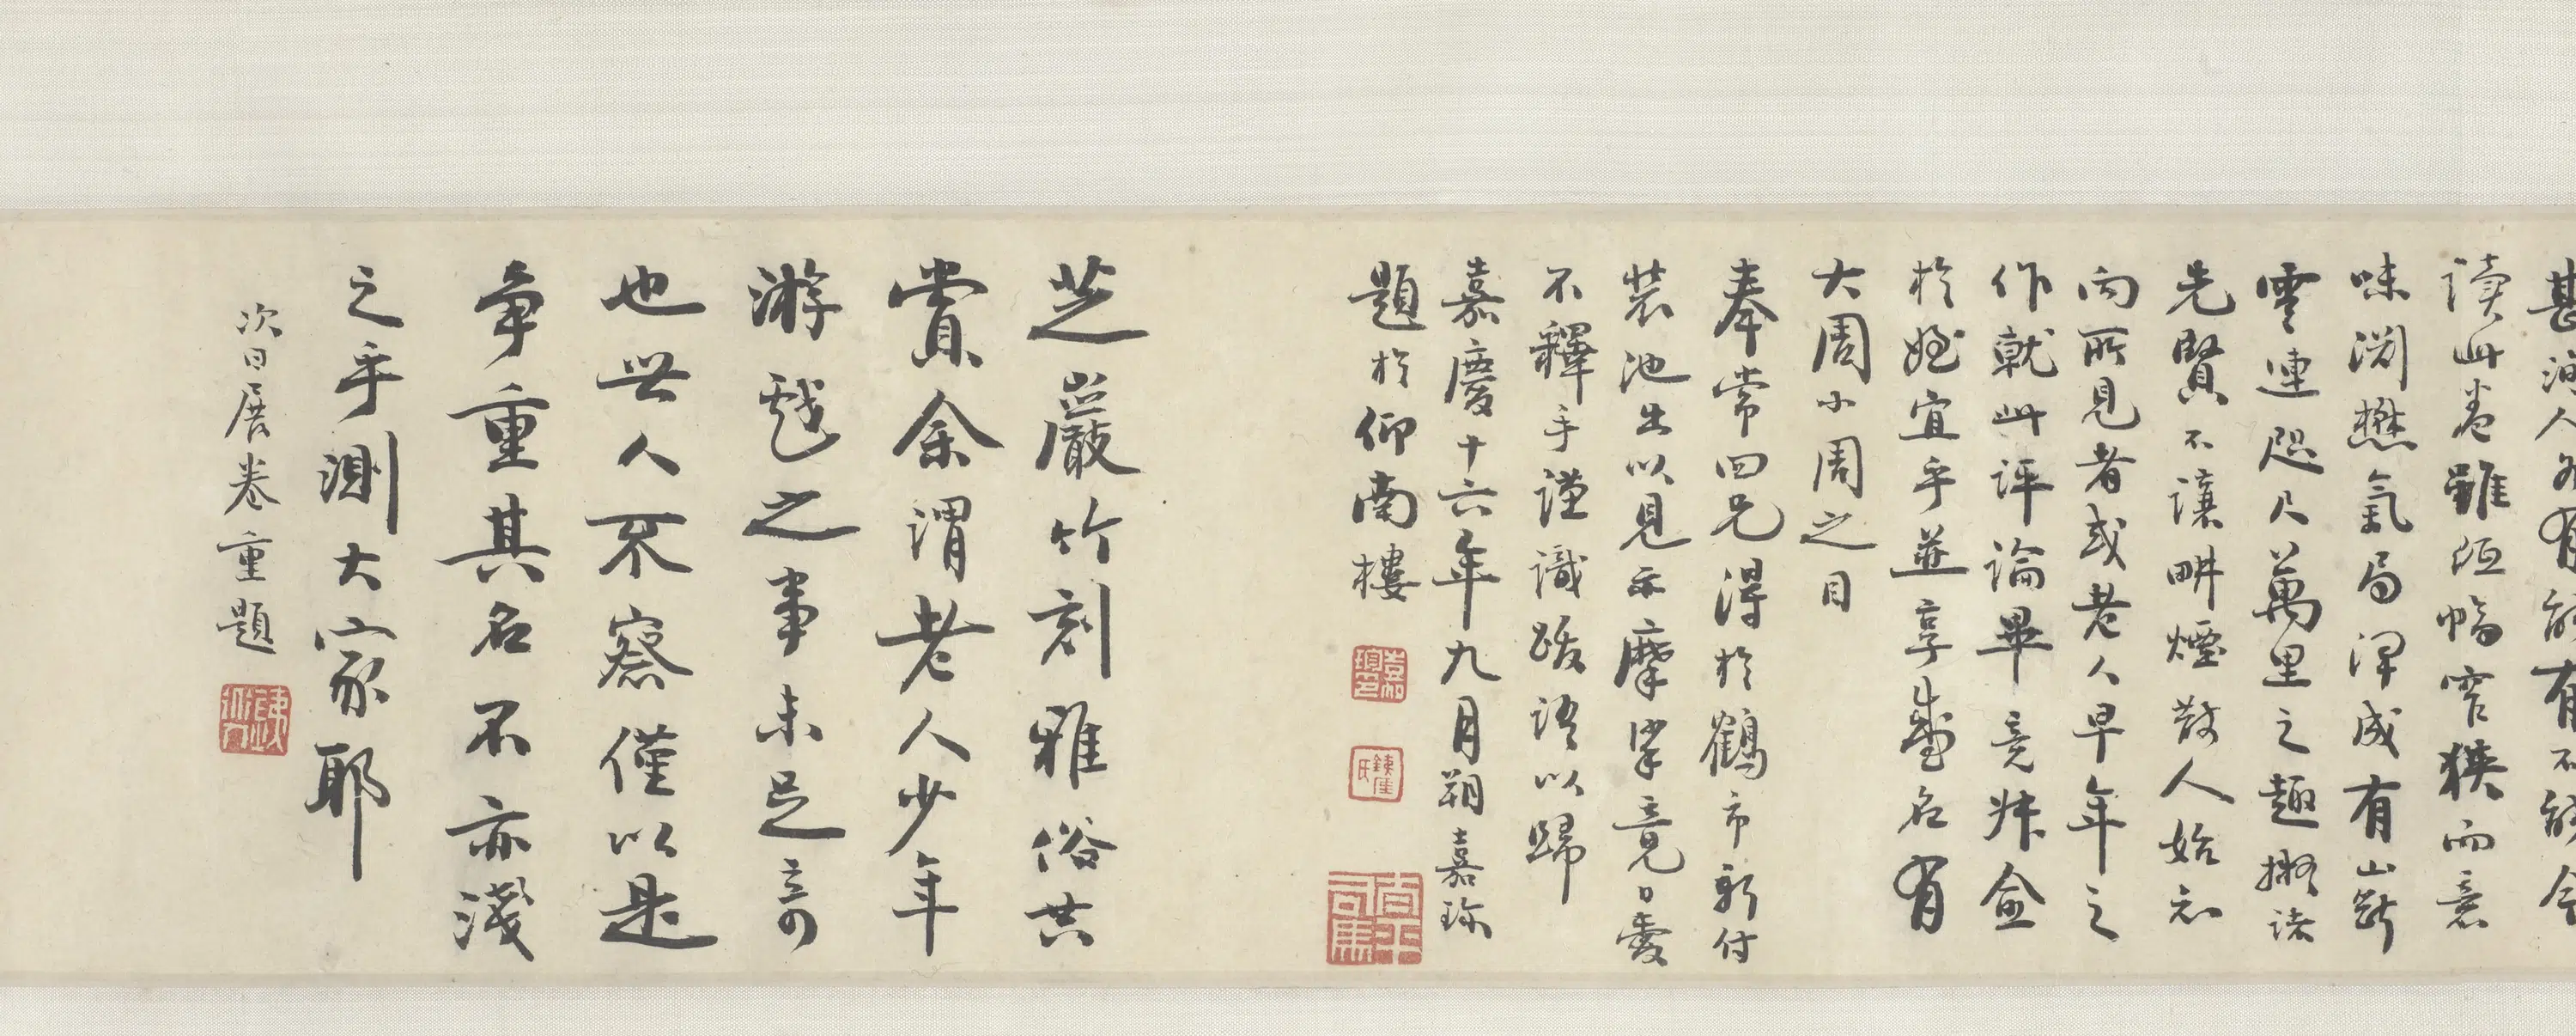 甚
讀此卷雖短幅窄狹而意
味淵懋氣局渾成有山斷
雲連咫尺萬里之趣擬諸
先賢不讓畊煙散人始知
向所見者或老人早年之
作就此評論畢竟姊僉
於姪宜乎並享盛名有
大周小周之目
奉常四兄得於鶴市新付
裝池出以見示摩挲竟日愛
不釋手謹識跋語以歸
嘉慶十六年九月朔嘉珍
題於仰南樓
芝巖竹刻雅俗共
賞余謂老人少年
游戲之事未足奇
也世人不察僅以是
爭重其名不亦淺
之乎測大家耶
次日展卷重題